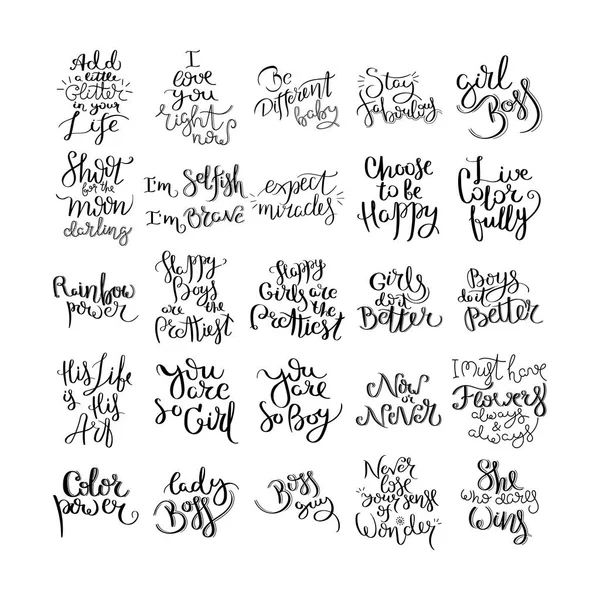 Add
a little
Glitter
in your
Life
I
love
you
right
now
Be
Different
baby
Stay
Fabulous
girl
Boss
Shoot
for the
moon
darling
I'm Selfish
I'm Brave
expect
miracles
Choose
to be
Happy
Live
Color
fully
Rainbow
power
Happy
Boys
are the
Prettiest
Happy
Girls are
the
Prettiest
Girls
do it
Better
Boys
do it
Better
His Life
is His
Art
you
are
so Girl
you
are
so Boy
Now
or
Never
I Must have
Flowers
always
&
always
Color
power
lady
Boss
Boss
guy
Never
lose
your sense
of
Wonder
She
who dares
Wins